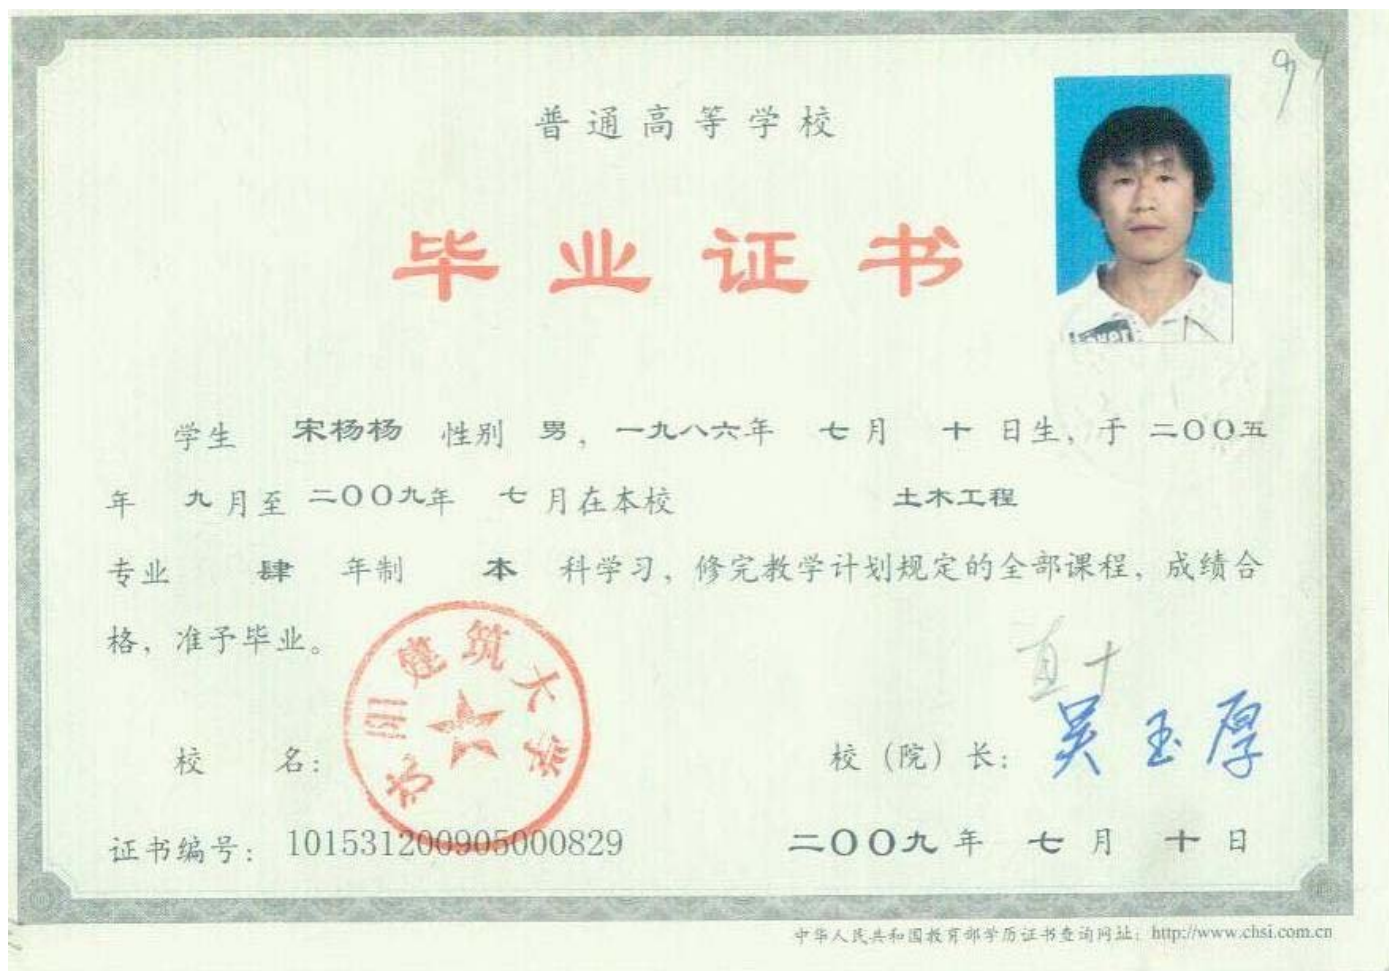 普通高等学校
毕业证书
学生 宋杨杨 性别 男，一九八六年 七月 十 日生，于 二〇〇五
年 九月至 二〇〇九年 七月在本校 土木工程
专业 肆 年制 本 科学习，修完教学计划规定的全部课程，成绩合
格，准予毕业。
直十
沈阳建筑大学
校 名：
校（院）长：吴玉厚
证书编号：101531200905000829
二〇〇九 年 七 月 十 日
中华人民共和国教育部学历证书查询网址：http://www.chsi.com.cn